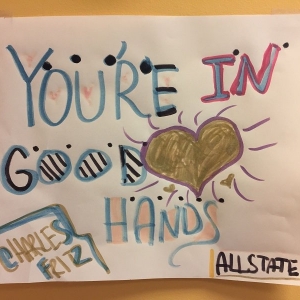 YOU'RE IN
GOOD
HANDS
CHARLES
FRITZ
ALLSTATE